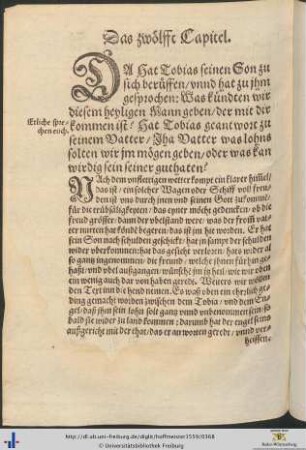 Das zwölffe Capitel.
DA Hat Tobias seinen Son zu
sich berüffen/ vnnd hat zu jhm
gesprochen: Was kündten wir
diesem heyligen Mann geben/ der mit dir
kommen ist? Hat Tobias geantwort zu
seinem Vatter/ Jha Vatter was lohns
solten wir jm mögen geben/ oder was kan
wirdig sein seiner gutthaten?
Etliche spre-
chen euch.
NAch dem vnlustigen wetter kompt ein klarer himel/
das ist/ ein solcher Wagen oder Schiff voll freu-
den ist vns durch jnen vnd seinen Gott zukommē/
für die trübsäligkeyten/ das einer möcht gedencken/ ob die
freud grösser: dann der wolstand were: was der from vat-
ter mit en hat könde begeren/ das ist jm hat worden. Er hat
sein Son nach schulden geschickt: hat zu sampt der schulden
wider vberkommen: hat das gesicht verloren: hats wider al
so gantz ingenommen: die freund/ welche jhnen für hin ge-
haßt/ vnd vbel außgangen: wünschē jm jn heil/ wie wir oben
ein wenig auch dar von haben geredt. Weiters wir wöllen
den Text inn die hend nemen. Es was oben ein ehrzlich ge-
ding gemacht worden zwischen dem Tobia/ vnd dem En-
gel/ daß jhm sein lohn solt gantz vnnd vnbenommen sein/ so
bald sie wider zu land kommen: darumb hat der engel seins
außgericht mit der that/ das er mit worten geredt/ vnnd ver-
heissen/
http://dl.ub.uni-freiburg.de/diglit/hoffmeister1559/0368
© Universitätsbibliothek Freiburg
Baden-Württemberg